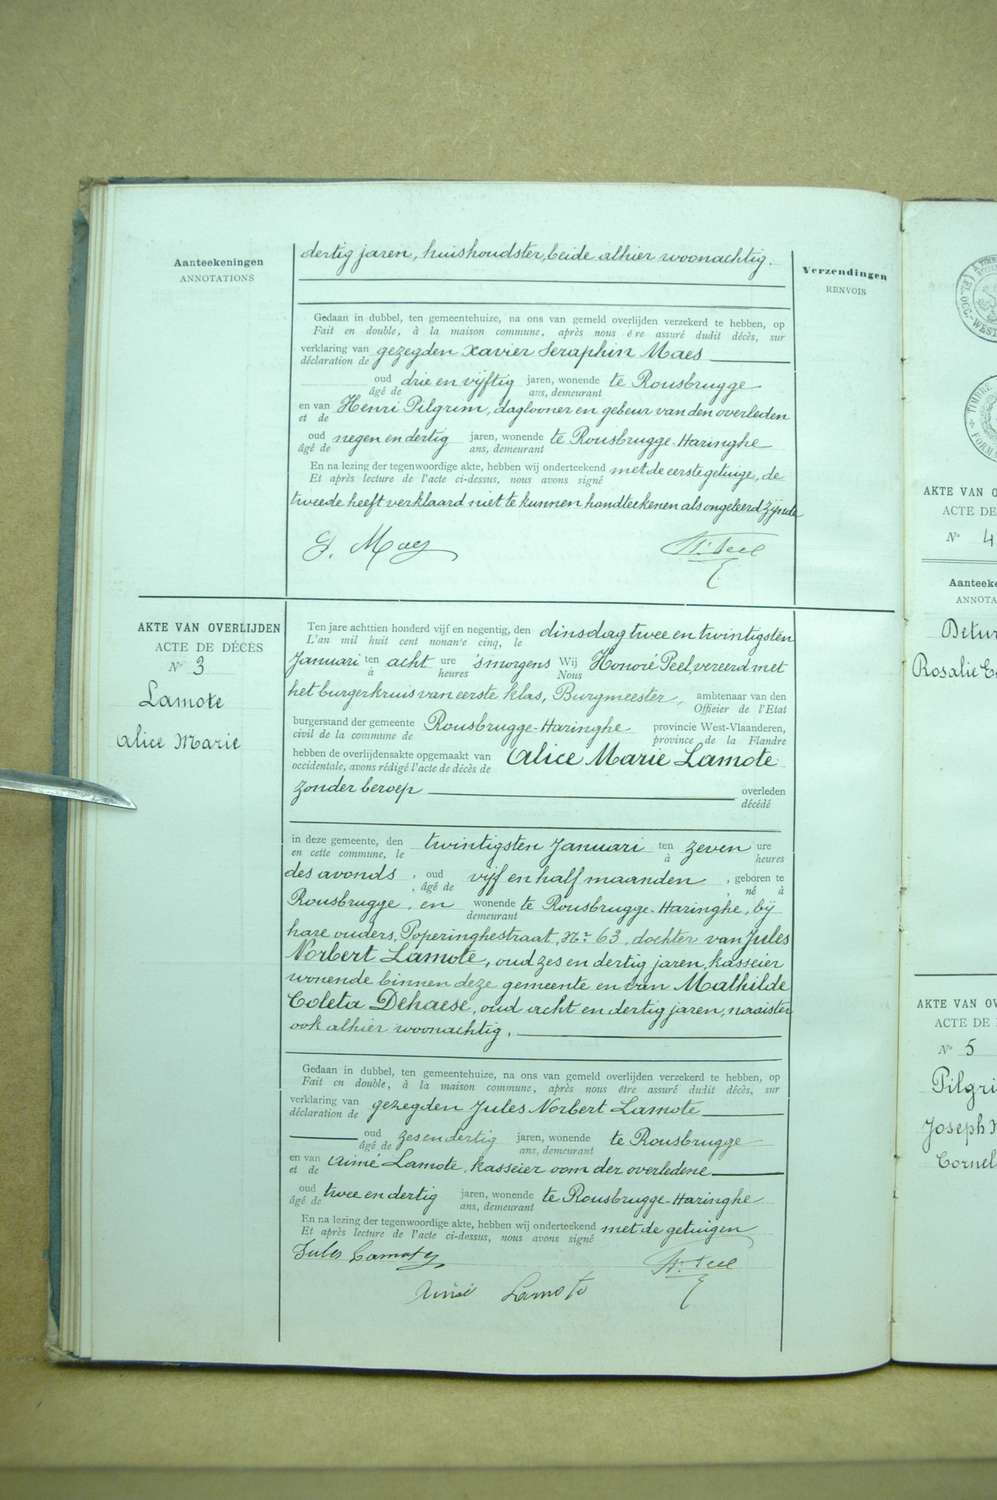 Aanteekeningen
ANNOTATIONS
dertig jaren, huishoudster, beide alhier woonachtig.
Verzendingen
RENVOIS
Gedaan in dubbel, ten gemeentehuize, na ons van gemeld overlijden verzekerd te hebben, op
Fait en double, à la maison commune, après nous être assuré dudit décès, sur
verklaring van gezegden Xavier Seraphin Maes
déclaration de
oud drie en vijftig jaren, wonende te Rousbrugge
âgé de ans, demeurant
en van Henri Pilgrim, daglooner en gebuur van den overleden
et de
oud negen en dertig jaren, wonende te Rousbrugge-Haringhe
âgé de ans, demeurant
En na lezing der tegenwoordige akte, hebben wij onderteekend met de eerste getuige, de
Et après lecture de l'acte ci-dessus, nous avons signé
tweede heeft verklaard niet te kunnen handteekenen als ongeleerd zijnde
Maes H. Peel
AKTE VAN OVERLIJDEN
ACTE DE DÉCÈS
No 3
Lamote
Alice Marie
Ten jare achttien honderd vijf en negentig, den dinsdag twee en twintigsten
L'an mil huit cent nonante cinq, le
Januari ten acht ure 's morgens Wij Honoré Peel, vereerd met
à heures Nous
het burgerkruis van eerste klas, Burgmeester, ambtenaar van den
Officier de l'Etat
burgerstand der gemeente Rousbrugge-Haringhe provincie West-Vlaanderen,
civil de la commune de province de la Flandre
hebben de overlijdensakte opgemaakt van Alice Marie Lamote
occidentale, avons rédigé l'acte de décès de
zonder beroep overleden
décédé
in deze gemeente, den twintigsten Januari ten zeven ure
en cette commune, le à heures
des avonds, oud vijf en half maanden, geboren te
, âgé de , né à
Rousbrugge, en wonende te Rousbrugge-Haringhe, bij
demeurant
hare ouders, Poperinghestraat, Nr 63, dochter van Jules
Norbert Lamote, oud zes en dertig jaren, kasseier
wonende binnen deze gemeente en van Mathilde
Coleta Dehaese, oud acht en dertig jaren, naaister
ook alhier woonachtig.
Gedaan in dubbel, ten gemeentehuize, na ons van gemeld overlijden verzekerd te hebben, op
Fait en double, à la maison commune, après nous être assuré dudit décès, sur
verklaring van gezegden Jules Norbert Lamote
déclaration de
oud zes en dertig jaren, wonende te Rousbrugge
âgé de ans, demeurant
en van Aimé Lamote, kasseier oom der overledene
et de
oud twee en dertig jaren, wonende te Rousbrugge-Haringhe
âgé de ans, demeurant
En na lezing der tegenwoordige akte, hebben wij onderteekend met de getuigen
Et après lecture de l'acte ci-dessus, nous avons signé
Jules Lamote H. Peel
Aimé Lamote
AKTE VAN O
ACTE DE
No 4
Aanteeke
ANNOTA
Detur
Rosalie C
AKTE VAN OV
ACTE DE
No 5
Pilgri
Joseph
Cornel